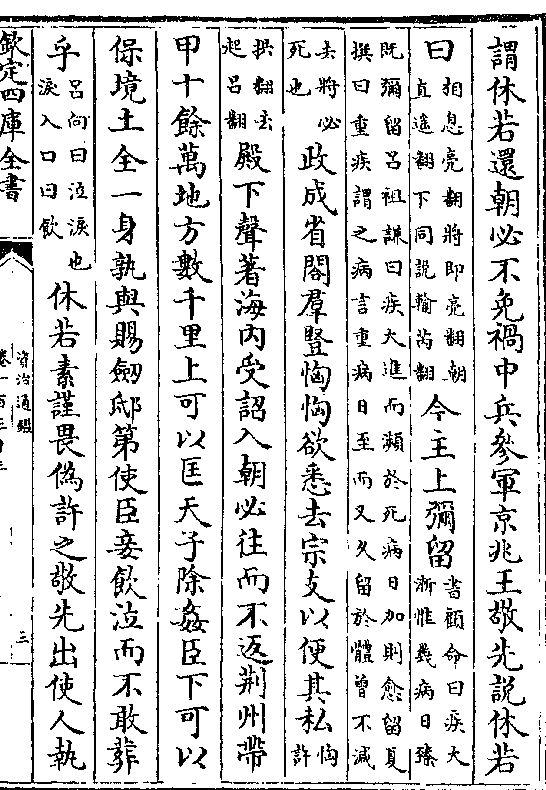 謂休若還朝必不免禍中兵參軍京兆王敬先說休若
曰相息亮翻將即亮翻朝直遙翻下同說輸芮翻今主上彌留書顧命曰疾大漸惟幾病日臻
既彌留呂祖謙曰疾大進而瀕於死病日加則愈留夏
撰曰重疾謂之病言重病日至而又久留於體曾不減
去將必死也政成省閣羣豎恟恟欲悉去宗支以便其私恟許
拱翻去起呂翻殿下聲著海内受詔入朝必往而不返荆州帶
甲十餘萬地方數千里上可以匡天子除姦臣下可以
保境土全一身孰與賜劒邸第使臣妾飲泣而不敢葬
乎呂向曰泣淚也淚入口曰飲休若素謹畏偽許之敬先出使人執
欽定四庫全書
資治通鑑
卷一百三十三
三